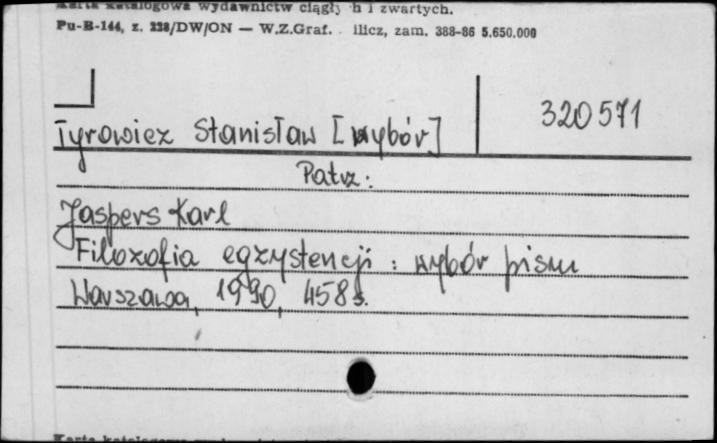 Karta katalogowa wydawnictw ciągłych i zwartych.
Pu-B-144, z. 228/DW/ON — W.Z.Graf. ilicz, zam. 388-86 5.650.000
320571
Tyrowicz Stanisław [wybór]
Patrz:
Jaspers Karl
Filozofia egzystencji : wybór pism
Warszawa, 1990, 458 s.
Karta katalogowa